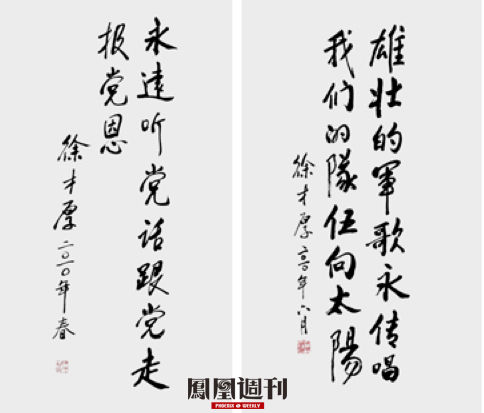 永遠听党话跟党走
报党恩
徐才厚二〇一〇年春
雄壮的軍歌永传唱
我们的隊伍向太陽
徐才厚 年八月
鳳凰週刊
PHOENIX WEEKLY